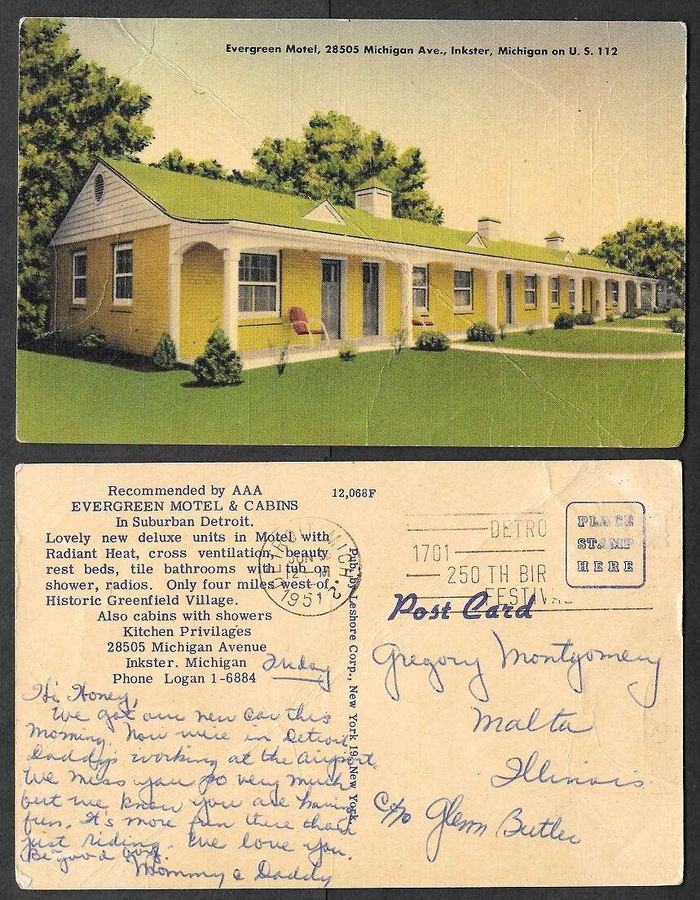 Evergreen Motel, 28505 Michigan Ave., Inkster, Michigan on U. S. 112
Recommended by AAA
EVERGREEN MOTEL & CABINS
In Suburban Detroit.
Lovely new deluxe units in Motel with
Radiant Heat, cross ventilation, beauty
rest beds, tile bathrooms with tub or
shower, radios. Only four miles west of
Historic Greenfield Village.
Also cabins with showers
Kitchen Privilages
28505 Michigan Avenue
Inkster, Michigan
Phone Logan 1-6884
12,068F
Friday
Hi Honey,
We got our new car this
morning. Now were in Detroit
Daddy's working at the airport.
We miss you so very much
but we know you are having
fun. It's more fun there than
just riding. We love you.
Be good boy.
Mommy & Daddy
Pub. by Leshore Corp., New York 19, New York
DETROIT, MICH.
JUN
12 M
1951
2
DETRO
1701
250 TH BIR
FESTIVAL
PLACE
STAMP
HERE
Post Card
Gregory Montgomery
Malta
Illinois
c/o Glenn Butler